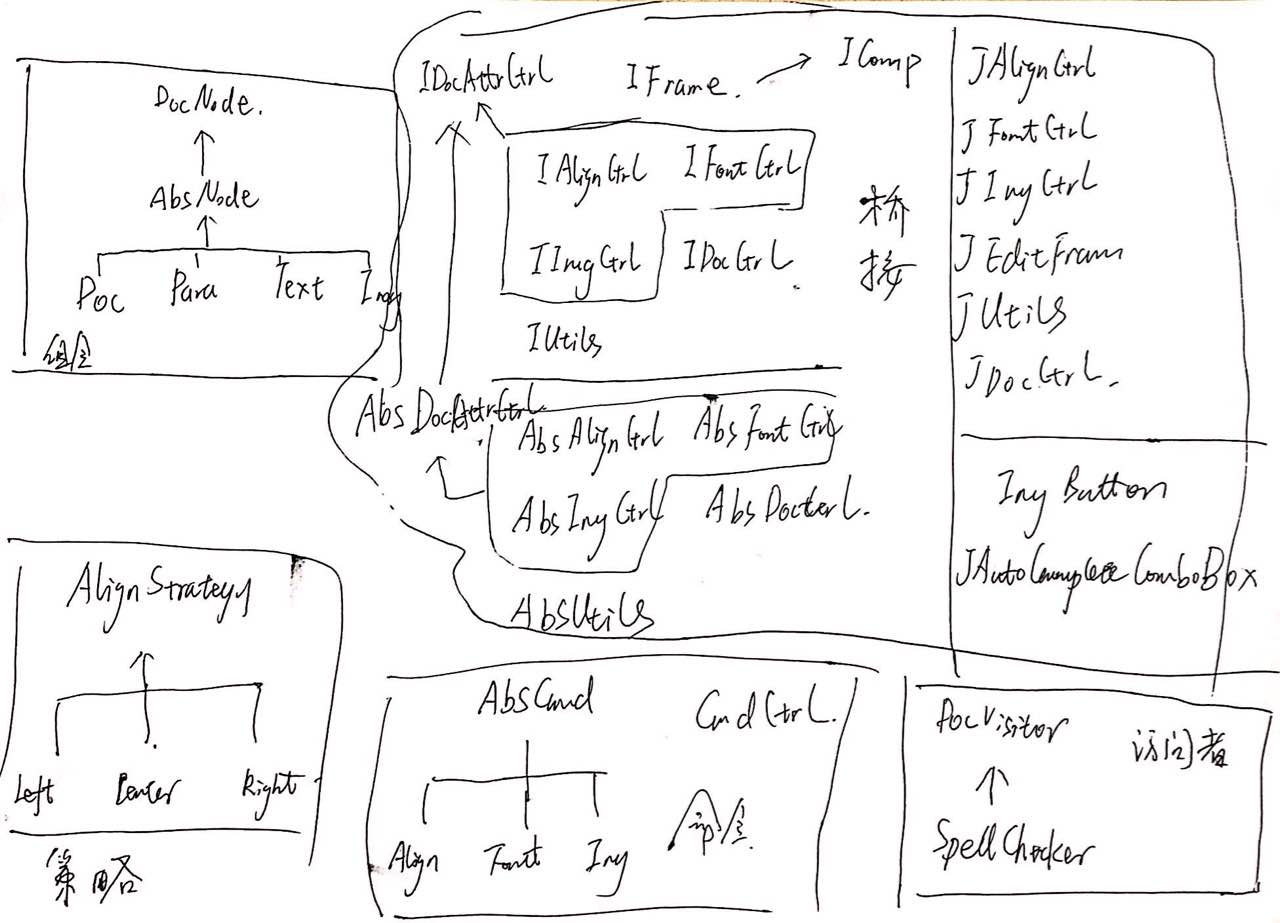 DocNode.
AbsNode
Doc Para Text Img
IDocAttrCtrl
IFrame.
IComp
IAlignCtrl IFontCtrl
IImgCtrl IDocCtrl
IUtils
桥
接
AbsDocAttrCtrl
AbsAlignCtrl AbsFontCtrl
AbsImgCtrl AbsDocCtrl.
AbsUtils
JAlignCtrl
JFontCtrl
JImgCtrl
JEditFram
JUtils
JDocCtrl.
Img Button
JAutoComplete ComboBox
AlignStrategy
Left Center Right
策略
AbsCmd
CmdCtrl.
Align Font Img
DocVisitor
访问者
SpellChecker